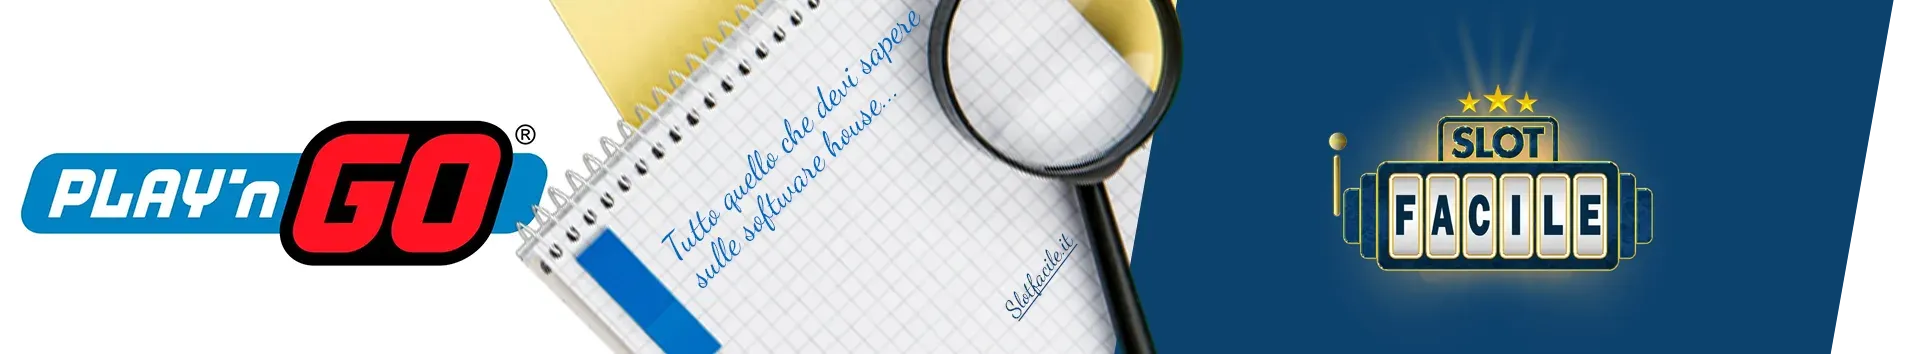 PLAY'n GO®
Tutto quello che devi sapere
sulle software house...
Slotfacile.it
SLOT
FACILE